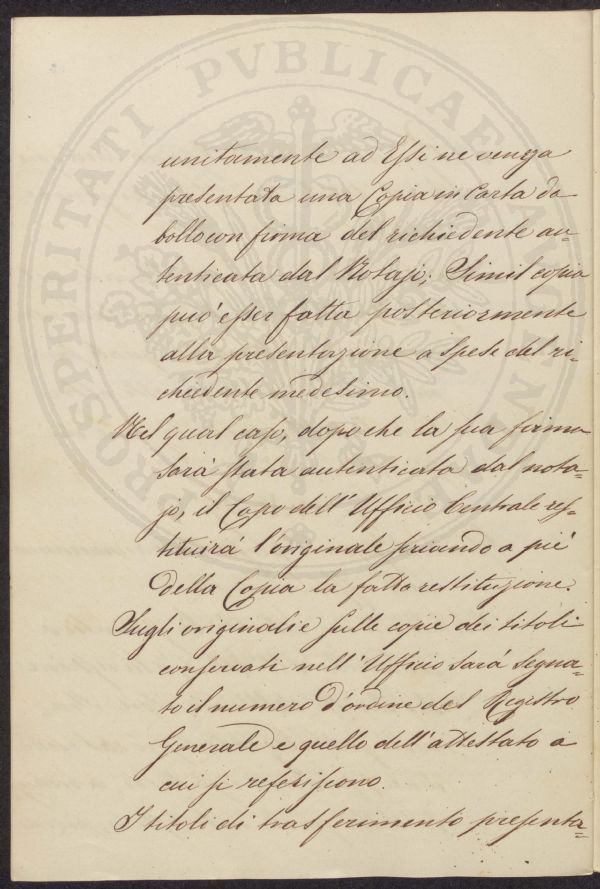 PROSPERITATI PVBLICAE
unitamente ad Essi ne venga
presentata una Copia in Carta da
bollo con firma del richiedente au-
tenticata dal Notajo; Simil copia
può esser fatta posteriormente
alla presentazione a spese del ri-
chiedente medesimo.
Nel qual caso, dopo che la sua firma
sarà stata autenticata dal nota-
jo, il Capo dell'Ufficio Centrale res-
tituirà l'originale facendo a piè
della Copia la fatta restituzione.
Sugli originali e sulle copie dei titoli
conservati nell'Ufficio sarà segna-
to il numero d'ordine del Registro
Generale e quello dell'attestato a
cui si referiscono.
I titoli di trasferimento presenta-